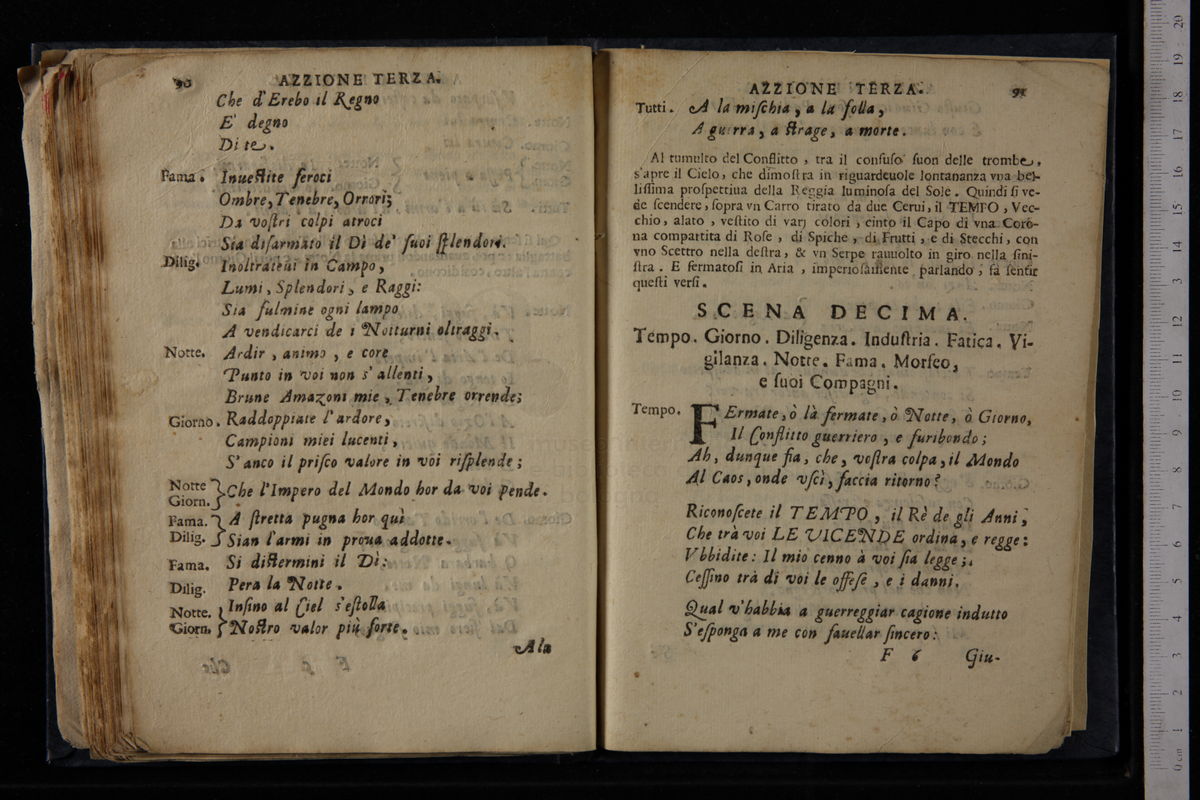 90 AZZIONE TERZA.
Che d'Erebo il Regno
E' degno
Di te.
Fama. Inuestite feroci
Ombre, Tenebre, Orrori;
Da vostri colpi atroci
Sia disarmato il Dì de' suoi splendori.
Dilig. Inoltrateui in Campo,
Lumi, Splendori, e Raggi:
Sia fulmine ogni lampo
A vendicarci de i Notturni oltraggi.
Notte. Ardir, animo, e core
Punto in voi non s'allenti,
Brune Amazoni mie, Tenebre orrende;
Giorno. Raddoppiate l'ardore,
Campioni miei lucenti,
S'anco il prisco valore in voi risplende;
Notte
Giorn. } Che l'Impero del Mondo hor da voi pende.
Fama. } A stretta pugna hor quì
Dilig. } Sian l'armi in proua addotte.
Fama. Si distermini il Dì:
Dilig. Pera la Notte.
Notte. } Insino al Ciel s'estolla
Giorn. } Nostro valor più forte.
A la
AZZIONE TERZA. 91
Tutti. A la mischia, a la folla,
A guerra, a strage, a morte.
Al tumulto del Conflitto, tra il confuso suon delle trombe,
s'apre il Cielo, che dimostra in riguardeuole lontananza vna bel-
lissima prospettiua della Reggia luminosa del Sole. Quindi si ve-
de scendere, sopra vn Carro tirato da due Cerui, il TEMPO, Vec-
chio, alato, vestito di varj colori, cinto il Capo di vna Coro-
na compartita di Rose, di Spiche, di Frutti, e di Stecchi, con
vno Scettro nella destra, & vn Serpe rauuolto in giro nella sini-
stra. E fermatosi in Aria, imperiosamente parlando, fà sentir
questi versi.
SCENA DECIMA.
Tempo. Giorno. Diligenza. Industria. Fatica. Vi-
gilanza. Notte. Fama. Morfeo,
e suoi Compagni.
Tempo. FErmate, ò là fermate, ò Notte, ò Giorno,
Il Conflitto guerriero, e furibondo;
Ah, dunque fia, che, vostra colpa, il Mondo
Al Caos, onde vscì, faccia ritorno?
Riconoscete il TEMPO, il Rè de gli Anni,
Che trà voi LE VICENDE ordina, e regge:
Vbbidite: Il mio cenno à voi sia legge;
Cessino trà di voi le offese, e i danni.
Qual v'habbia a guerreggiar cagione indutto
S'esponga a me con fauellar sincero:
F 6 Giu-